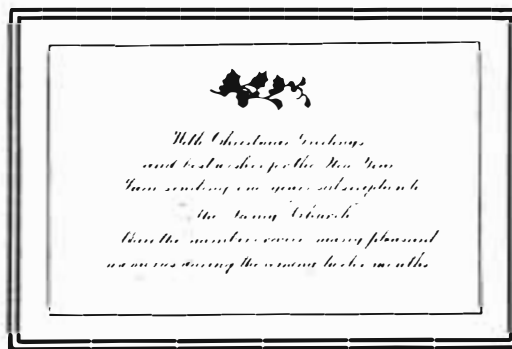 With Christmas Greetings
and best wishes for the New Year
I am sending one years subscription to
The Living Church
the number many pleasant
during the coming twelve months